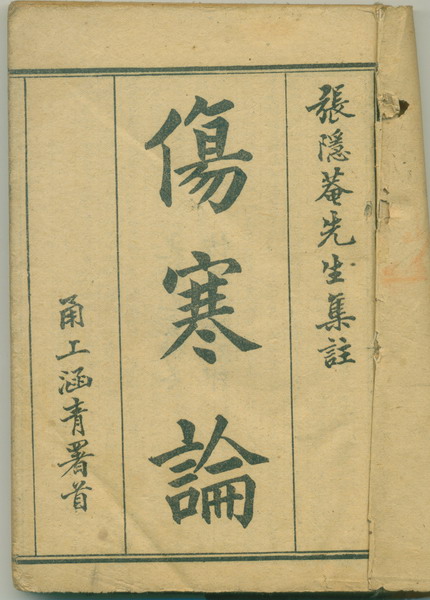 張隱菴先生集註
傷寒論
甬工涵青署首